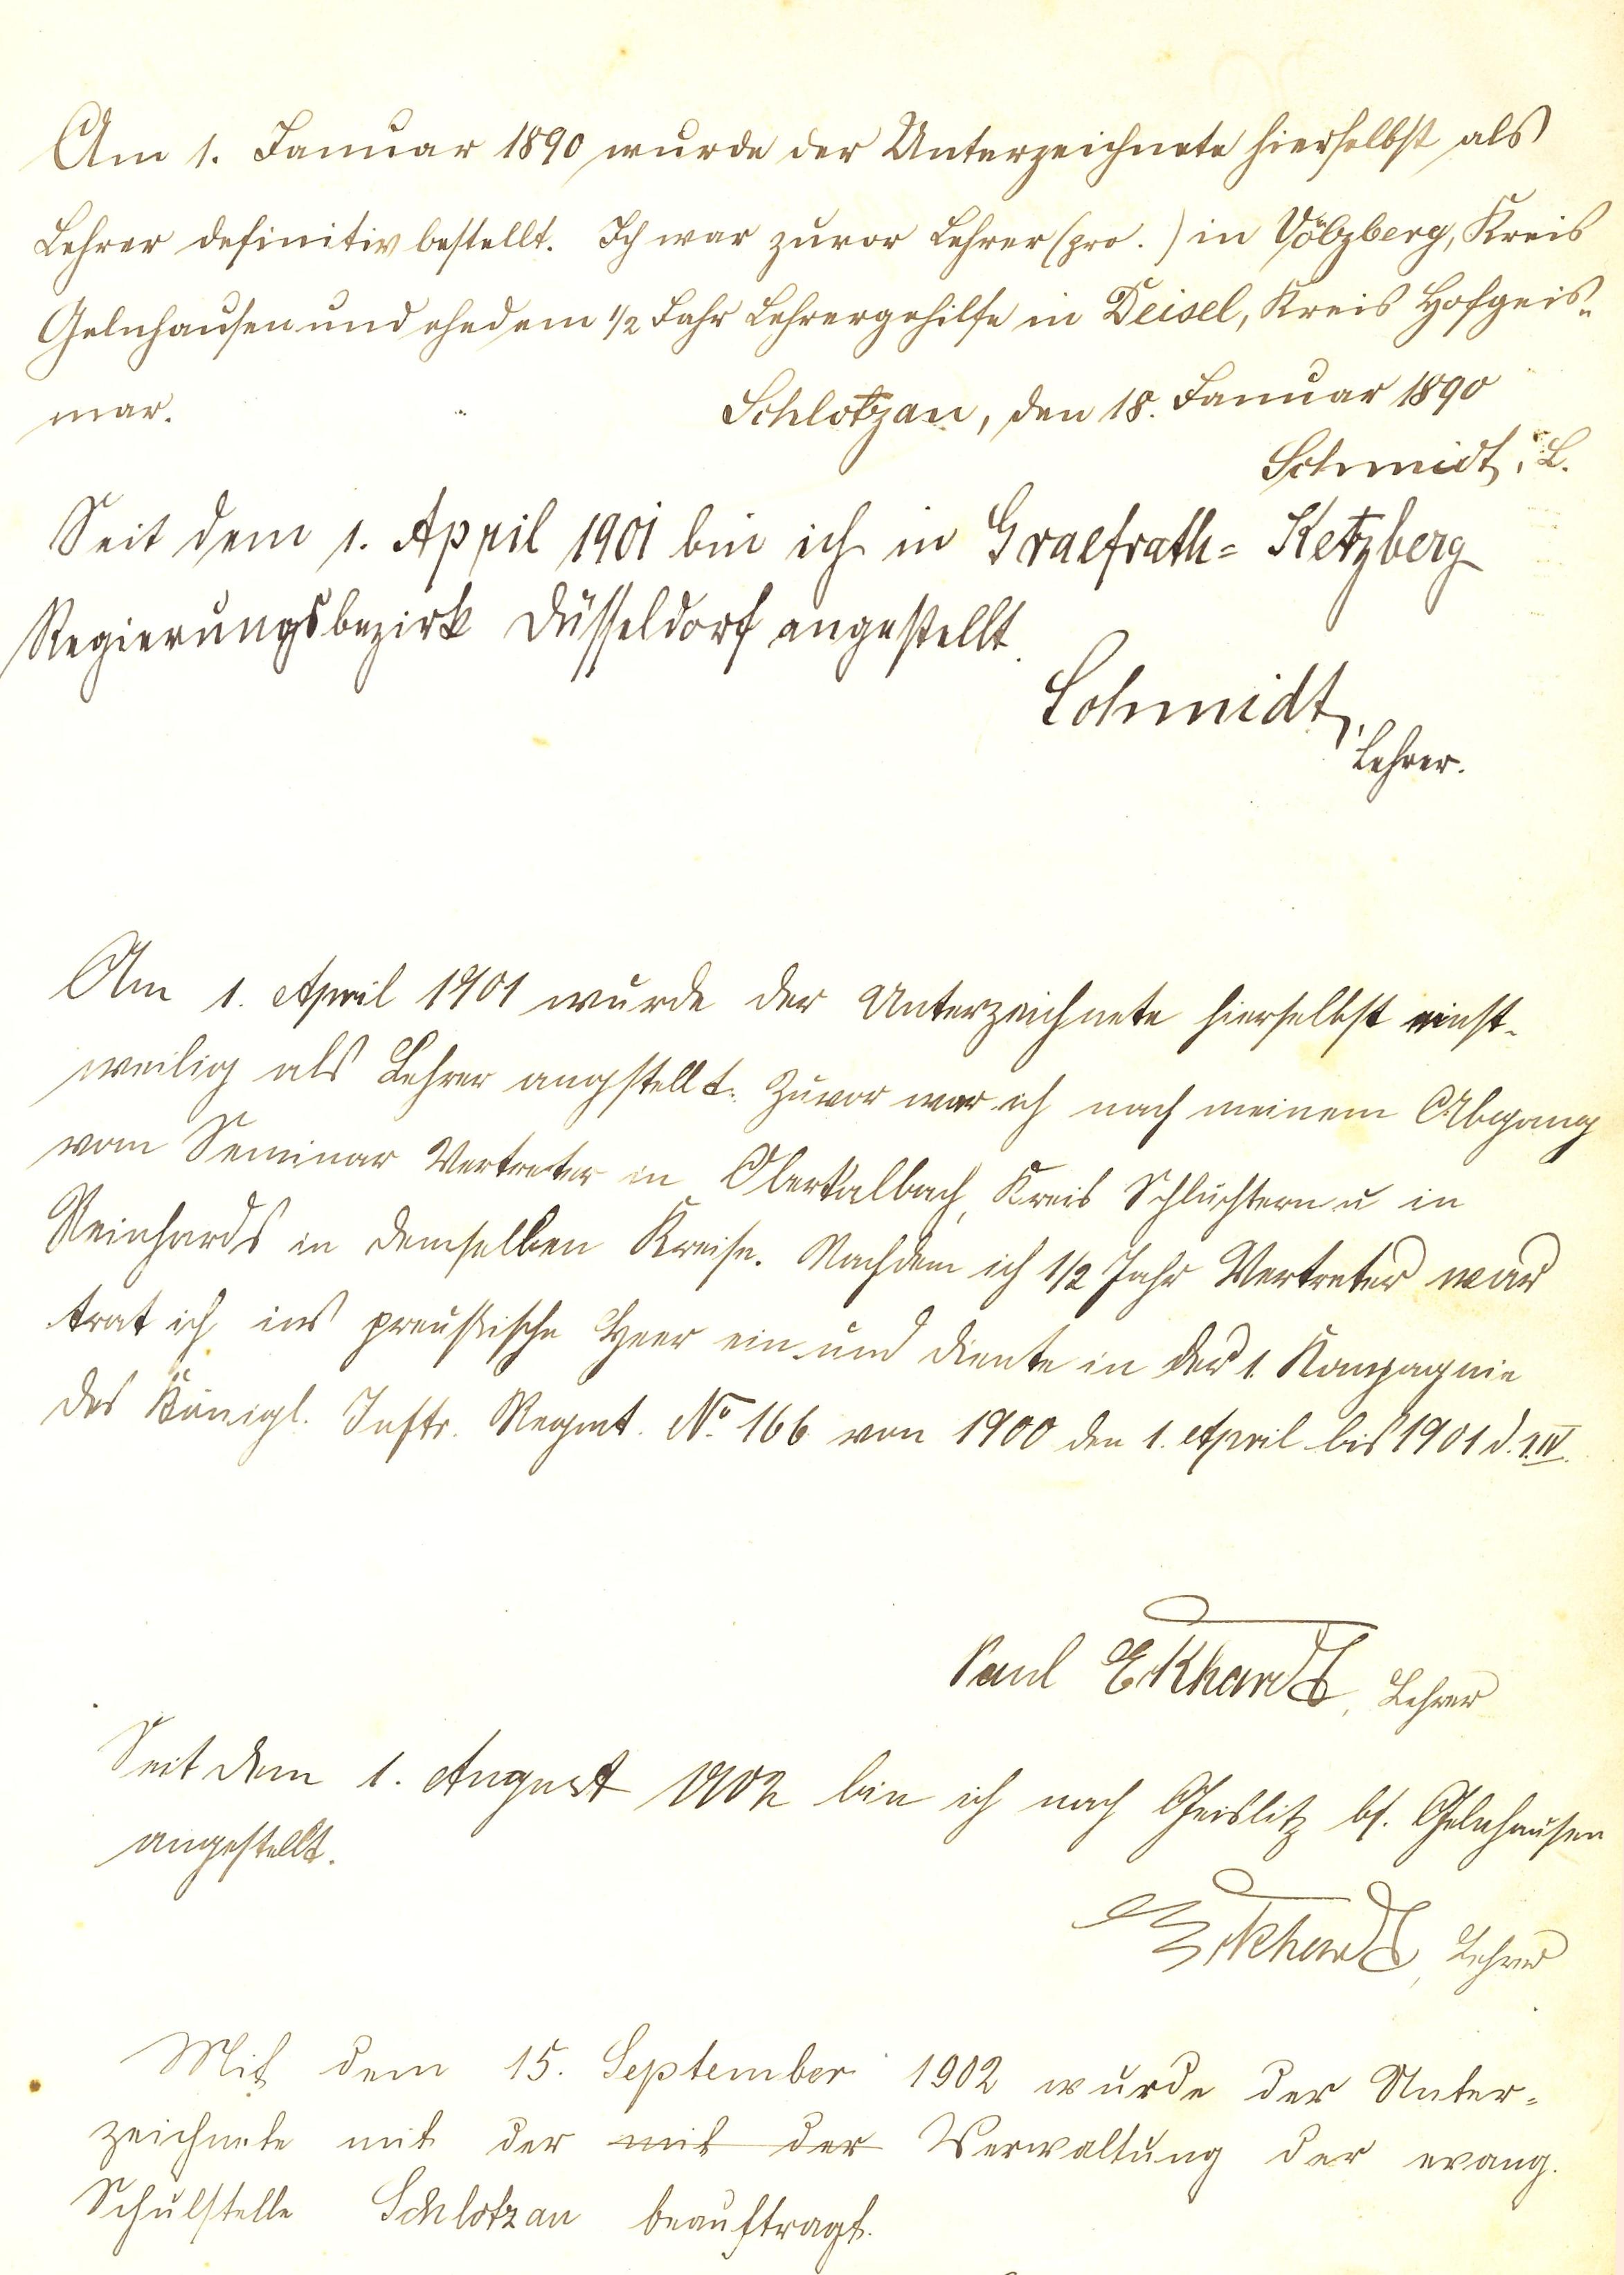 Am 1. Januar 1890 wurde der Unterzeichnete hierselbst als
Lehrer definitiv bestellt. Ich war zuvor Lehrer (pro.) in Völzberg, Kreis
Gelnhausen und ehedem 1/2 Jahr Lehrergehilfe in Deisel, Kreis Hofgeis-
mar.
Schlotzau, den 18. Januar 1890
Schmidt, L.
Seit dem 1. April 1901 bin ich in Graefrath- Ketzberg
Regierungsbezirk Düsseldorf angestellt.
Schmidt,
Lehrer.
Am 1. April 1901 wurde der Unterzeichnete hierselbst einst-
weilig als Lehrer angstellt. Zuvor war ich nach meinem Abgang
vom Seminar Vertreter in Oberkalbach, Kreis Schlüchtern u in
Reinhards in demselben Kreise. Nachdem ich 1/2 Jahr Vertreter war
trat ich ins preußische Heer ein und diente in der 1. Kompagnie
des Königl. Inftr. Regmt. No. 166 von 1900 den 1. April bis 1901 d. 1.IV.
Paul Ekhardt, Lehrer
Seit dem 1. August 1902 bin ich nach Geislitz bf. Gelnhausen
angestellt.
Ekhardt, Lehrer
Mit dem 15. September 1902 wurde der Unter-
zeichnete mit der mit der Verwaltung der evang.
Schulstelle Schlotzau beauftragt.